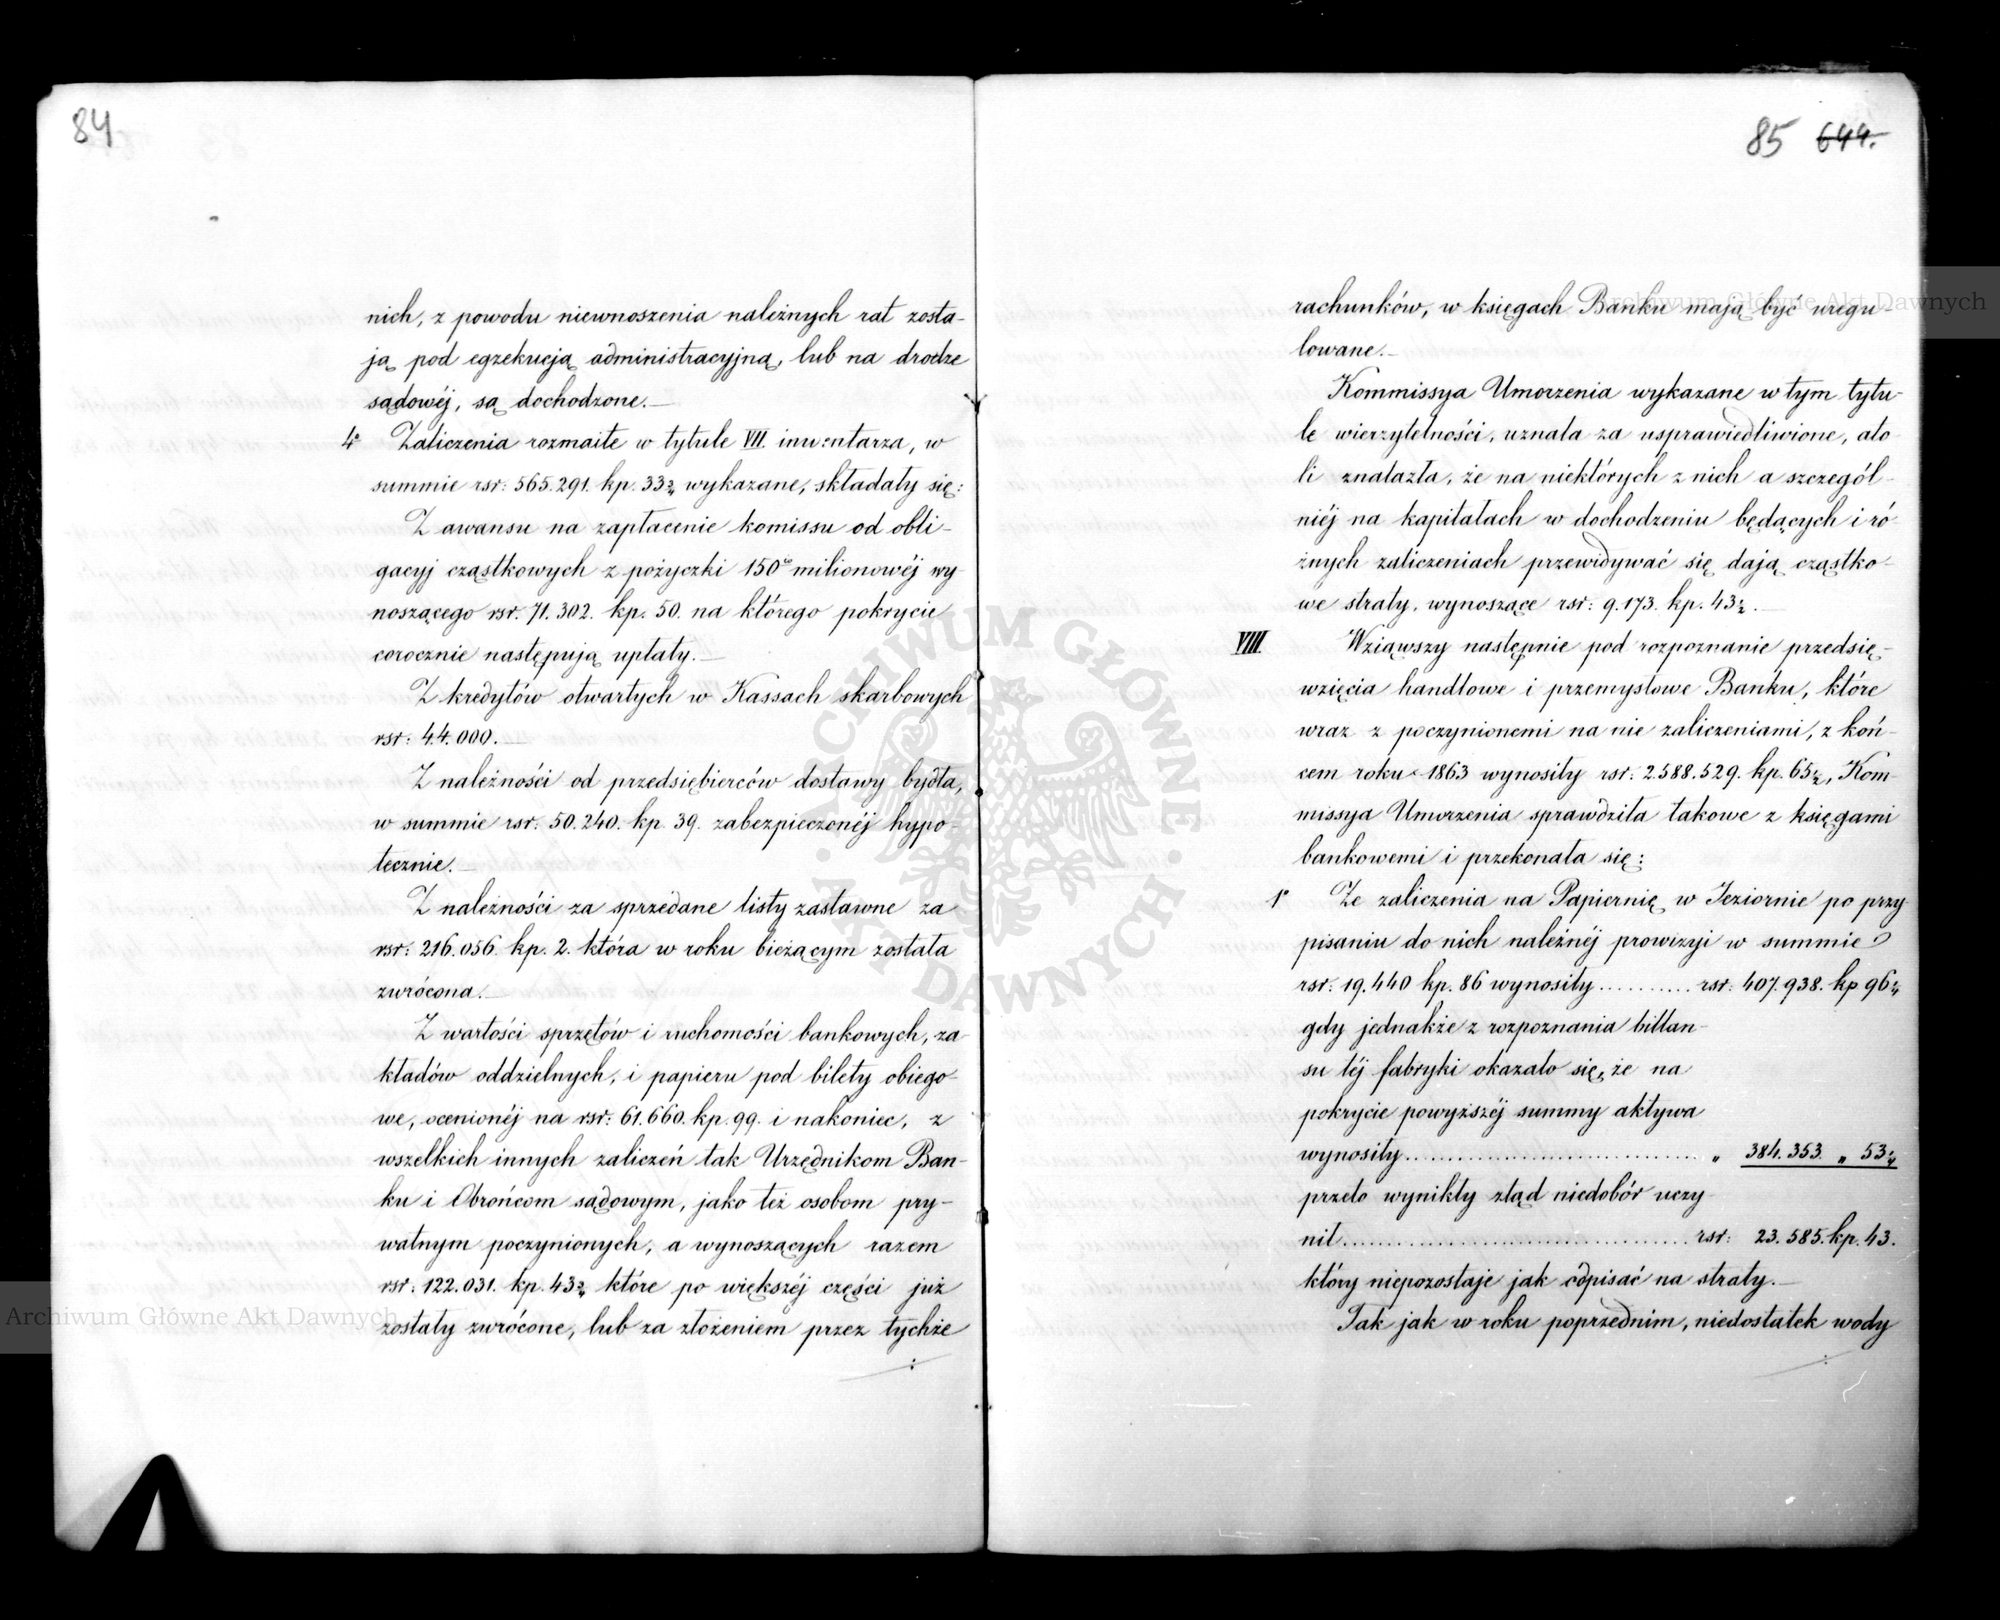 84
nich, z powodu niewnoszenia należnych rat zosta-
ją pod egzekucją administracyjną, lub na drodze
sądowéj, są dochodzone.—
4° Zaliczenia rozmaite w tytule VII. inwentarza, w
summie rsr: 565.291. kp. 33¾ wykazane, składały się:
Z awansu na zapłacenie komissu od obli-
gacyj cząstkowych z pożyczki 150 milionowéj wy
noszącego rsr. 71.302. kp. 50. na którego pokrycie
corocznie następują upłaty.—
Z kredytów otwartych w Kassach skarbowych
rsr: 44.000.—
Z należności od przedsiębierców dostawy bydła,
w summie rsr: 50.240. kp. 39. zabezpieczonéj hypo-
tecznie.—
Z należności za sprzedane listy zastawne za
rsr: 216.056. kp. 2. która w roku bieżącym została
zwrócona.—
Z wartości sprzętów i ruchomości bankowych, za-
kładów oddzielnych, i papieru pod bilety obiego-
we, ocenionéj na rsr: 61.660. kp. 99. i nakoniec, z
wszelkich innych zaliczeń tak Urzędnikom Ban-
ku i Obrońcom sądowym, jako też osobom pry-
watnym poczynionych, a wynoszących razem
rsr: 122.031. kp. 43¾ które po większéj części już
zostały zwrócone, lub za złożeniem przez tychże
85 644.
rachunków, w księgach Banku mają być uregu-
lowane.—
Kommissya Umorzenia wykazane w tym tytu-
le wierzytelności, uznała za usprawiedliwione, ato-
li znalazła, że na niektórych z nich a szczegól-
niéj na kapitałach w dochodzeniu będących i ró-
żnych zaliczeniach przewidywać się dają cząstko-
we straty, wynoszące rsr: 9.173. kp. 43½.—
VIII. Wziąwszy następnie pod rozpoznanie przedsię-
wzięcia handlowe i przemysłowe Banku, które
wraz z poczynionemi na nie zaliczeniami, z koń-
cem roku 1863 wynosiły rsr: 2.588.529. kp. 65½, Kom-
missya Umorzenia sprawdziła takowe z księgami
bankowemi i przekonała się:
1° Że zaliczenia na Papiernię w Jeziornie po przy
pisaniu do nich należnéj prowizyi w summie
rsr: 19.440 kp. 86 wynosiły .......... rsr: 407.938. kp. 96¼
gdy jednakże z rozpoznania billan-
su téj fabryki okazało się, że na
pokrycie powyższéj summy aktywa
wynosiły .............................. „ 384.353. „ 53¼
przeto wynikły ztąd niedobór uczy-
nił .................................. rsr: 23.585. kp. 43.
który niepozostaje jak odpisać na straty.—
Tak jak w roku poprzednim, niedostatek wody
Archiwum Główne Akt Dawnych
Archiwum Główne Akt Dawnych
ARCHIWUM GŁÓWNE AKT DAWNYCH